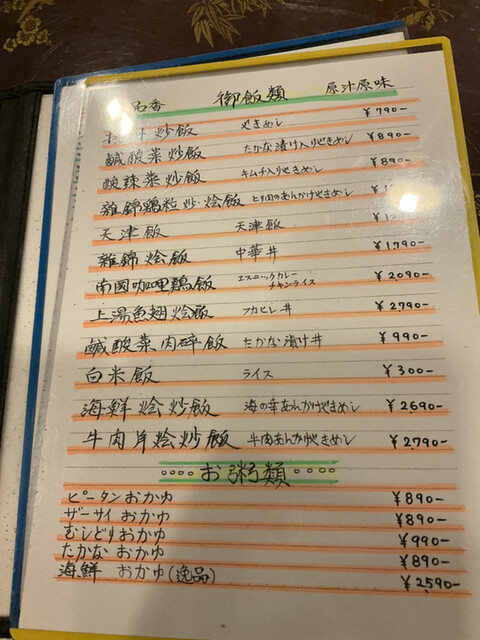 品香 御飯類 原汁原味
炒飯 やきめし ¥790-
鹹酸菜炒飯 たかな漬け入りやきめし ¥890-
酸辣菜炒飯 キムチ入りやきめし ¥890-
雜錦鶏粒炒・烩飯 とり肉のあんかけやきめし
天津飯 天津飯
雜錦烩飯 中華丼 ¥1,790-
南国咖哩鶏飯 エスニックカレーチキンライス ¥2,090-
上湯魚翅烩飯 フカヒレ丼 ¥2,790-
鹹酸菜肉碎飯 たかな漬け丼 ¥990-
白米飯 ライス ¥300-
海鮮烩炒飯 海の幸あんかけやきめし ¥2690-
牛肉片烩炒飯 牛肉あんかけやきめし ¥2,790-
お粥類
ピータンおかゆ ¥890-
ザーサイおかゆ ¥890-
むしどりおかゆ ¥990-
たかなおかゆ ¥890-
海鮮おかゆ(逸品) ¥2,590-